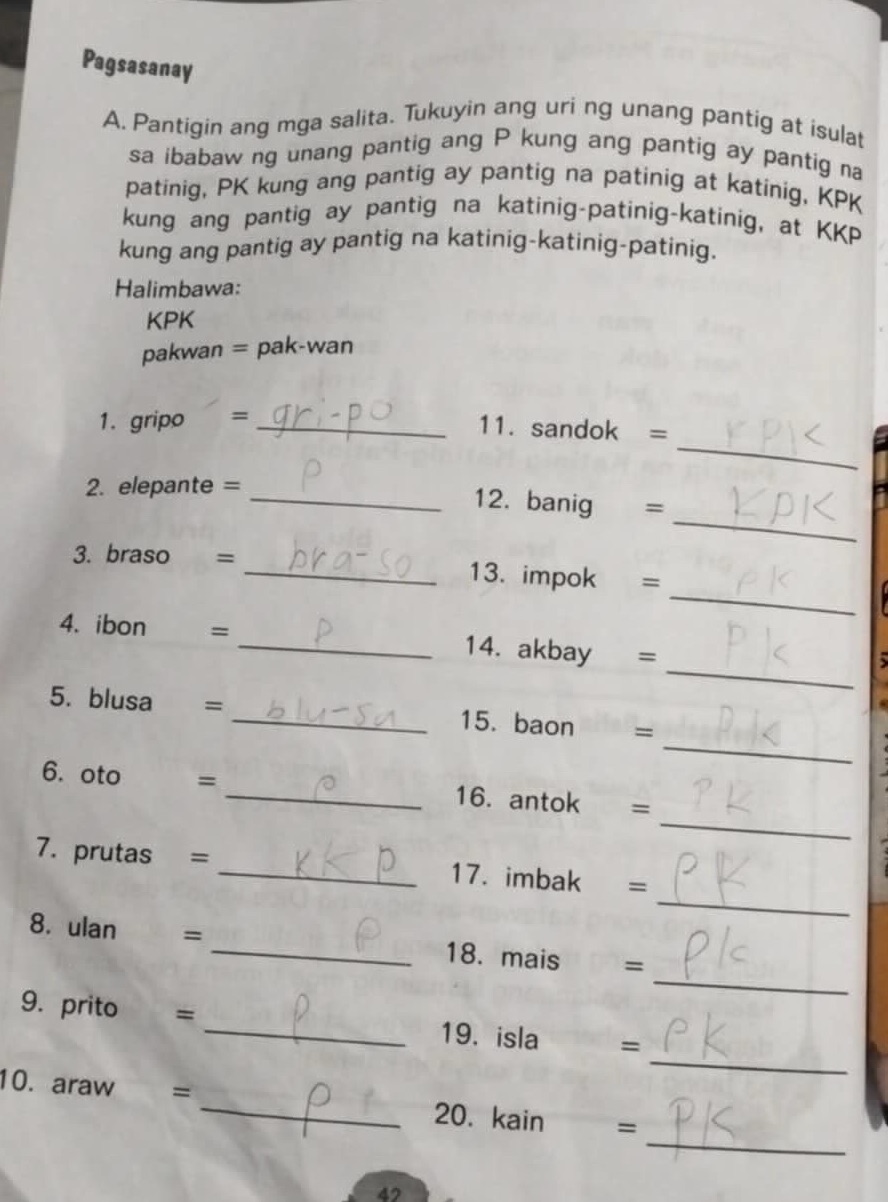 Pagsasanay
A. Pantigin ang mga salita. Tukuyin ang uri ng unang pantig at isulat
sa ibabaw ng unang pantig ang P kung ang pantig ay pantig na
patinig, PK kung ang pantig ay pantig na patinig at katinig, KPK
kung ang pantig ay pantig na katinig-patinig-katinig, at KKP
kung ang pantig ay pantig na katinig-katinig-patinig.
Halimbawa:
KPK
pakwan = pak-wan
1. gripo = gri-po
2. elepante = P
3. braso = bra-so
4. ibon = P
5. blusa = blu-sa
6. oto = P
7. prutas = KKP
8. ulan = P
9. prito = P
10. araw = P
11. sandok = KPK
12. banig = KPK
13. impok = PK
14. akbay = PK
15. baon = PK
16. antok = PK
17. imbak = PK
18. mais = PK
19. isla = PK
20. kain = PK
42